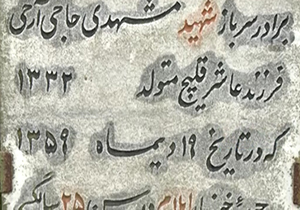 برادر سرباز شهید مشهدی حاجی آرخی
فرزند عاشر قلیچ متولد ۱۳۳۲
که در تاریخ ۱۹ دیماه ۱۳۵۹
ایلام ۲۵ سالگی